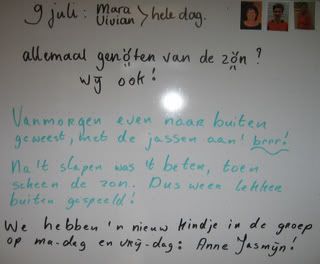 9 juli: Mara
Vivian > hele dag.
allemaal genoten van de zon?
wij ook!
Vanmorgen even naar buiten
geweest, met de jassen aan! brrr!
Na 't slapen was 't beter, toen
scheen de zon. Dus weer lekker
buiten gespeeld!
We hebben 'n nieuw kindje in de groep
op ma-dag en vrij-dag: Anne Jasmijn!